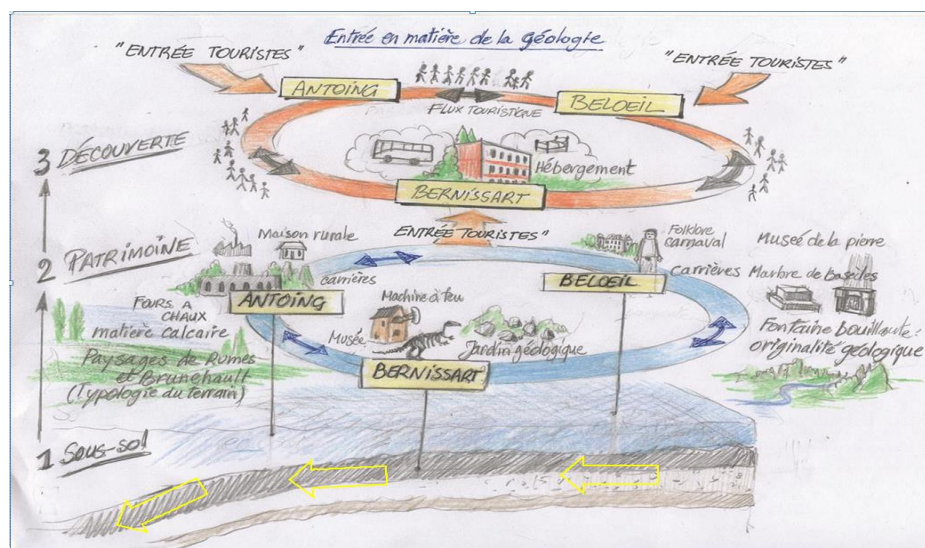 Entrée en matière de la géologie
"ENTRÉE TOURISTES"
"ENTRÉE TOURISTES"
ANTOING
FLUX TOURISTIQUE
BELOEIL
3 DÉCOUVERTE
Hébergement
BERNISSART
ENTRÉE TOURISTES"
2 PATRIMOINE
Maison rurale
carrières
ANTOING
FOURS A
CHAUX
matière calcaire
Paysages de Rumes
et Brunehault
(Typologie du terrain)
Machine à feu
Musée
Jardin géologique
BERNISSART
Folklore
carnaval
BELOEIL
carrières
Museé de la pierre
Marbre de basècles
Fontaine bouillante:
originalité géologique
1 Sous-sol